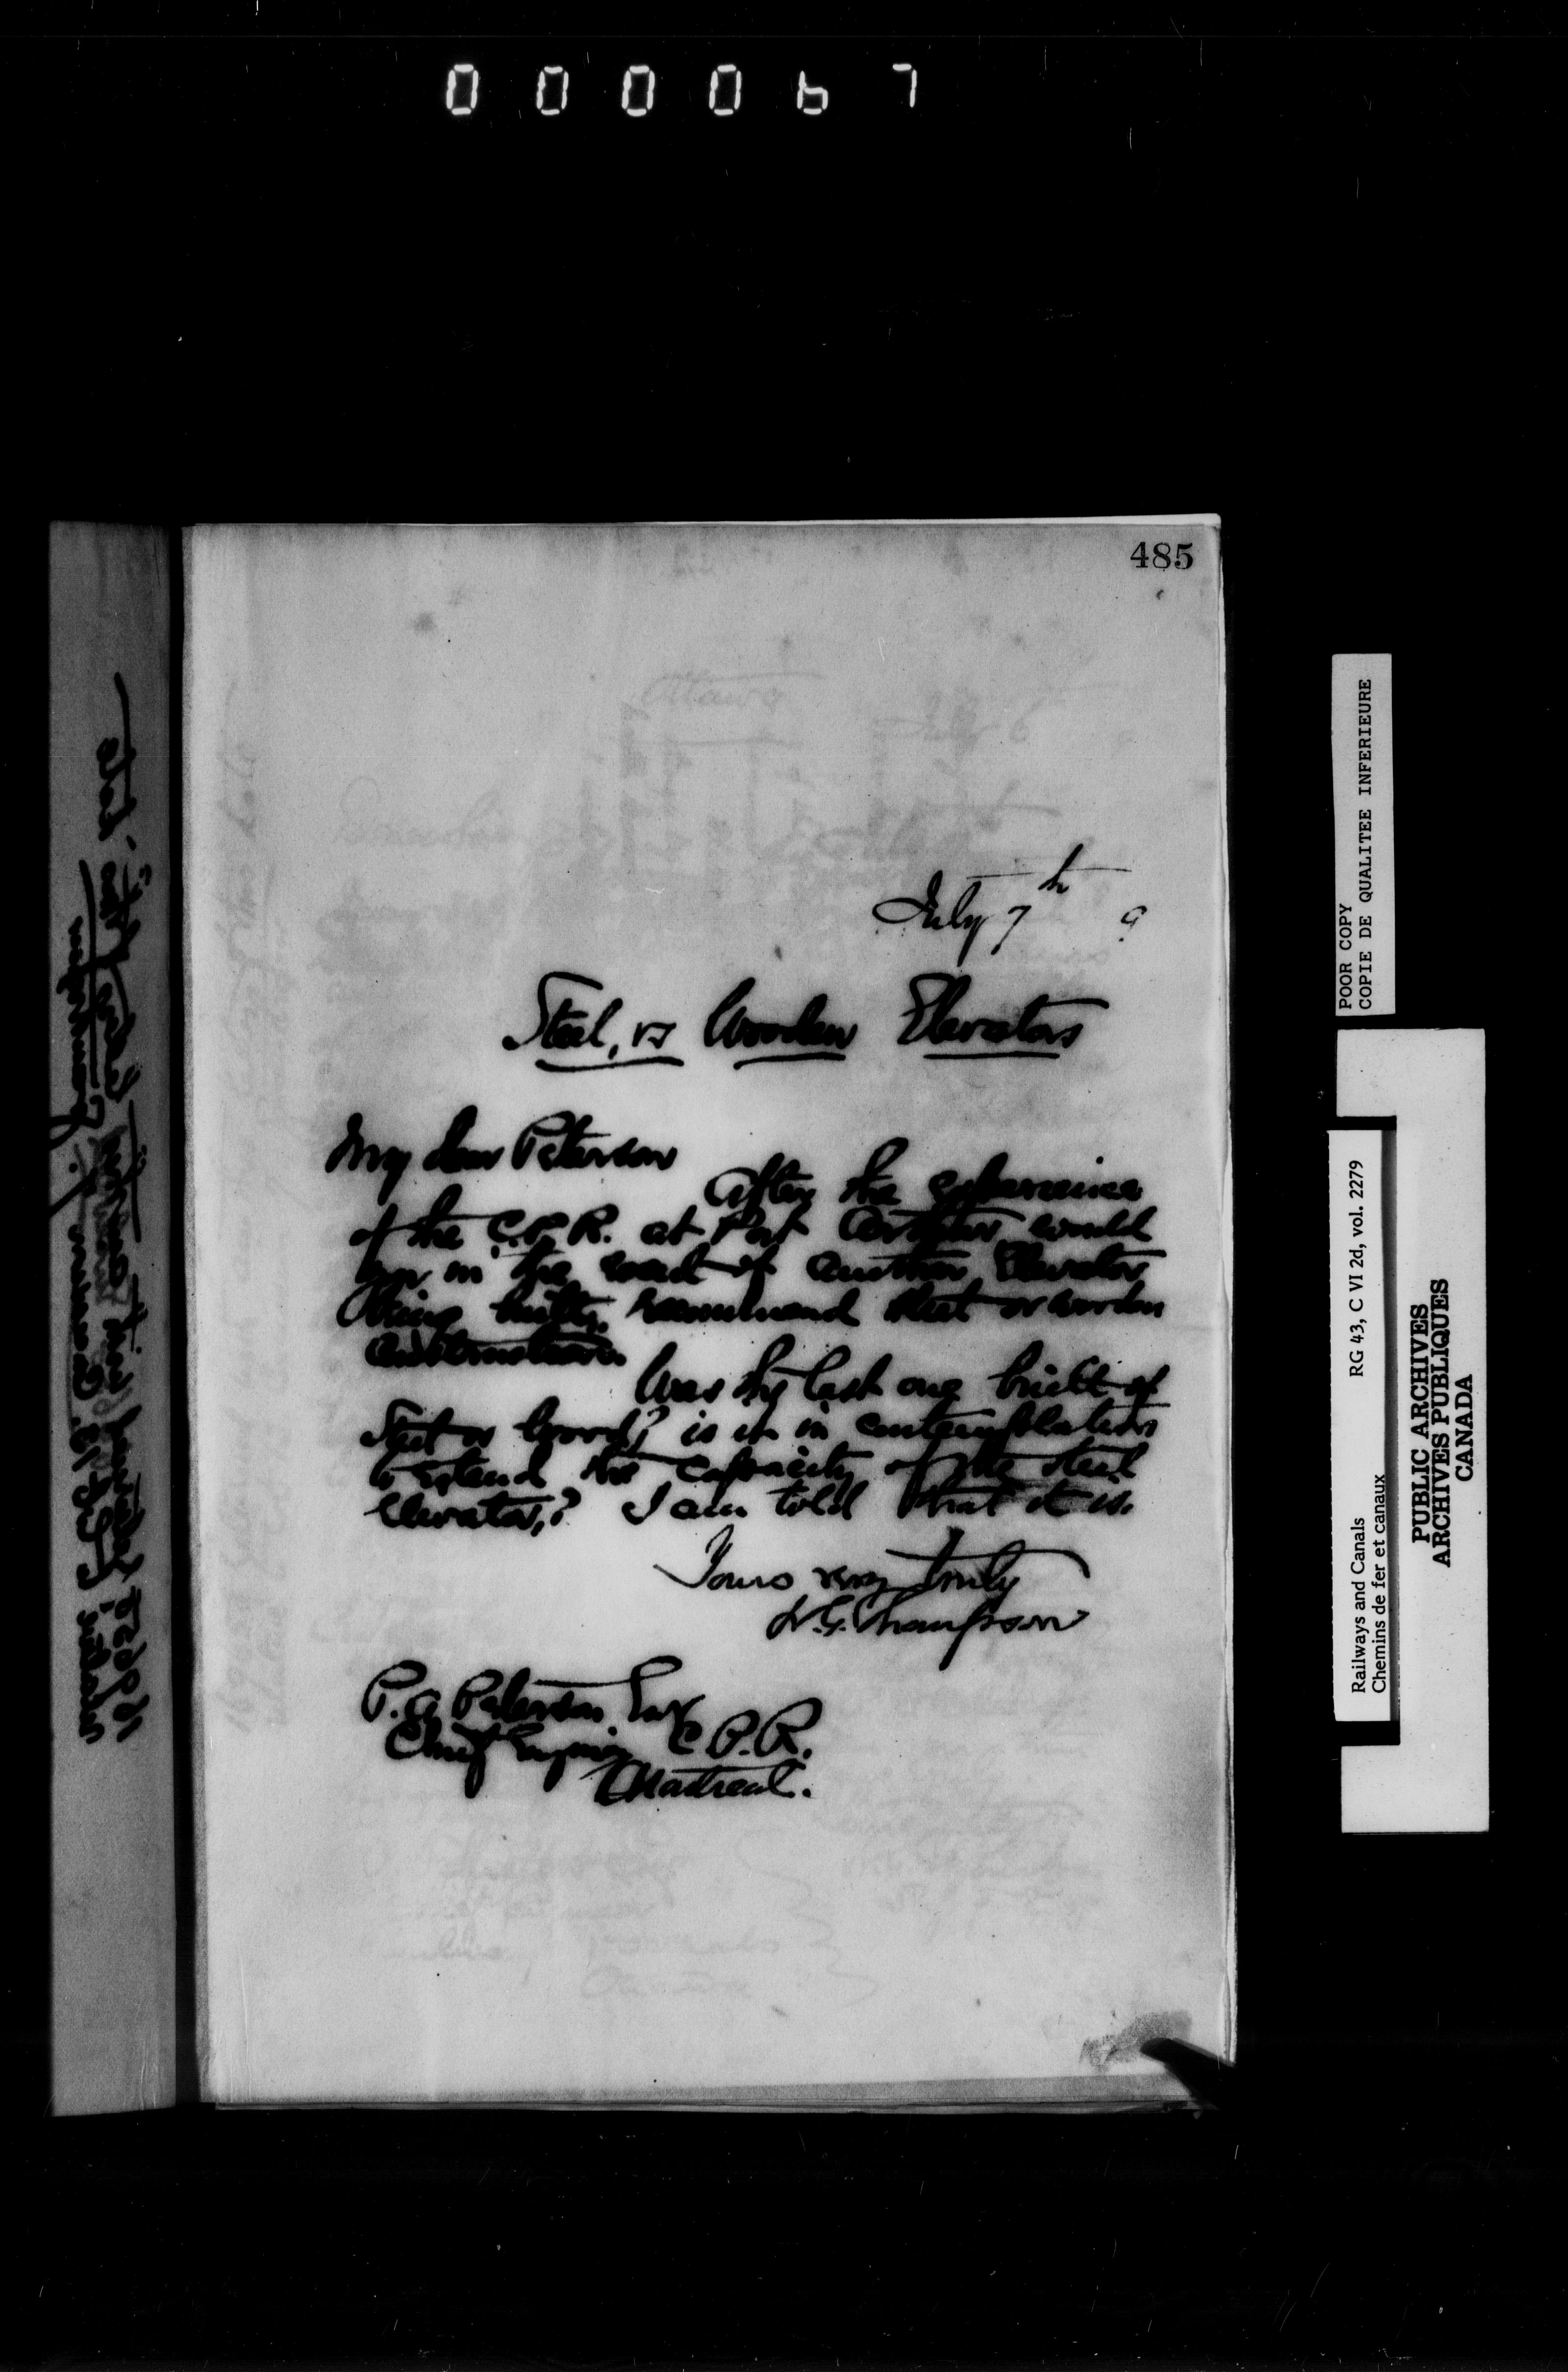 000067
485
July 7th 9
Steel, vs Wooden Elevators
My dear Peterson
After the experience
of the C.P.R. at Port Arthur would
you in the event of another Elevator
being built, recommend steel or wooden
construction.
Was the last one built of
Steel or Wood? is it in contemplation
to extend the capacity of the steel
Elevator,? I am told that it is.
Yours very truly
W.G. Thompson
P.A. Peterson Esq
Chief Engineer C.P.R.
Montreal.
POOR COPY
COPIE DE QUALITEE INFERIEURE
Railways and Canals RG 43, C VI 2d, vol. 2279
Chemins de fer et canaux
PUBLIC ARCHIVES
ARCHIVES PUBLIQUES
CANADA